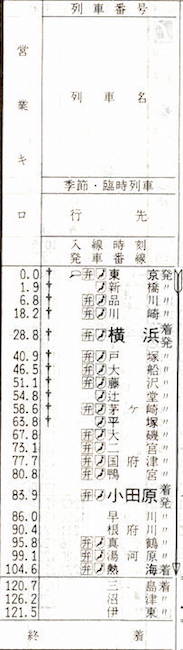 列車番号
営業キロ
列車名
季節・臨時列車
行先
入線時刻
発車番線
0.0 † 弁 東京 発
1.9 † 新橋 〃
6.8 † 弁 品川 〃
18.2 † 弁 川崎 〃
28.8 † 弁 横浜 着発
40.9 † 弁 戸塚 〃
46.5 † 弁 大船 〃
51.1 † 弁 藤沢 〃
54.8 † 辻堂 〃
58.6 † 弁 茅ヶ崎 〃
63.8 † 弁 平塚 〃
67.8 弁 大磯 〃
73.1 弁 二宮 〃
77.7 弁 国府津 〃
80.8 弁 鴨宮 〃
83.9 弁 小田原 着発
86.0 早川 〃
90.4 根府川 〃
95.8 弁 真鶴 〃
99.1 弁 湯河原 〃
104.6 弁 熱海 着
120.7 三島 着
126.2 沼津 〃
121.5 伊東 〃
終着